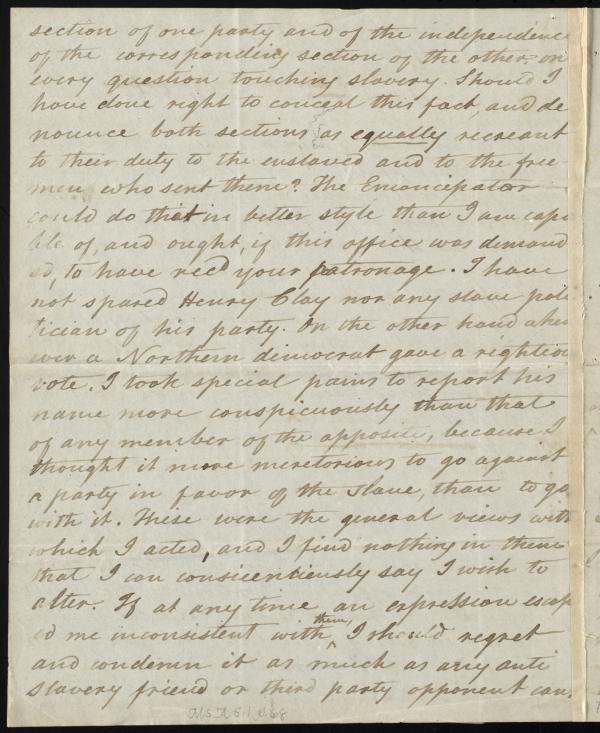 section of one party and of the independence
of the corresponding section of the other, on
every question touching slavery. Should I
have done right to conceal this fact, and de
nounce both sections as equally recreant
to their duty to the enslaved and to the free
men who sent them? The Emancipator
could do that in better style than I am capa
ble of, and ought, if this office was demand
ed, to have recd your patronage. I have
not spared Henry Clay nor any slave poli
tician of his party. On the other hand when
ever a Northern democrat gave a righteous
vote, I took special pains to report his
name more conspicuously than that
of any member of the opposite, because I
thought it more meretorious to go against
a party in favor of the slave, than to go
with it. These were the general views with
which I acted, and I find nothing in them
that I can consicentiously say I wish to
alter. If at any time an expression escap
ed me inconsistent with them, I should regret
and condemn it as much as any anti
slavery friend or third party opponent can.
Ms.A.5.1 N.68